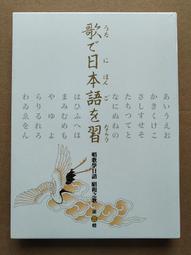 うた に ほん ご ならう
歌で日本語を習
あいうえお
かきくけこ
さしすせそ
たちつてと
なにぬねの
はひふへほ
まみむめも
や ゆ よ
らりるれろ
唱歌學日語 昭和之歌